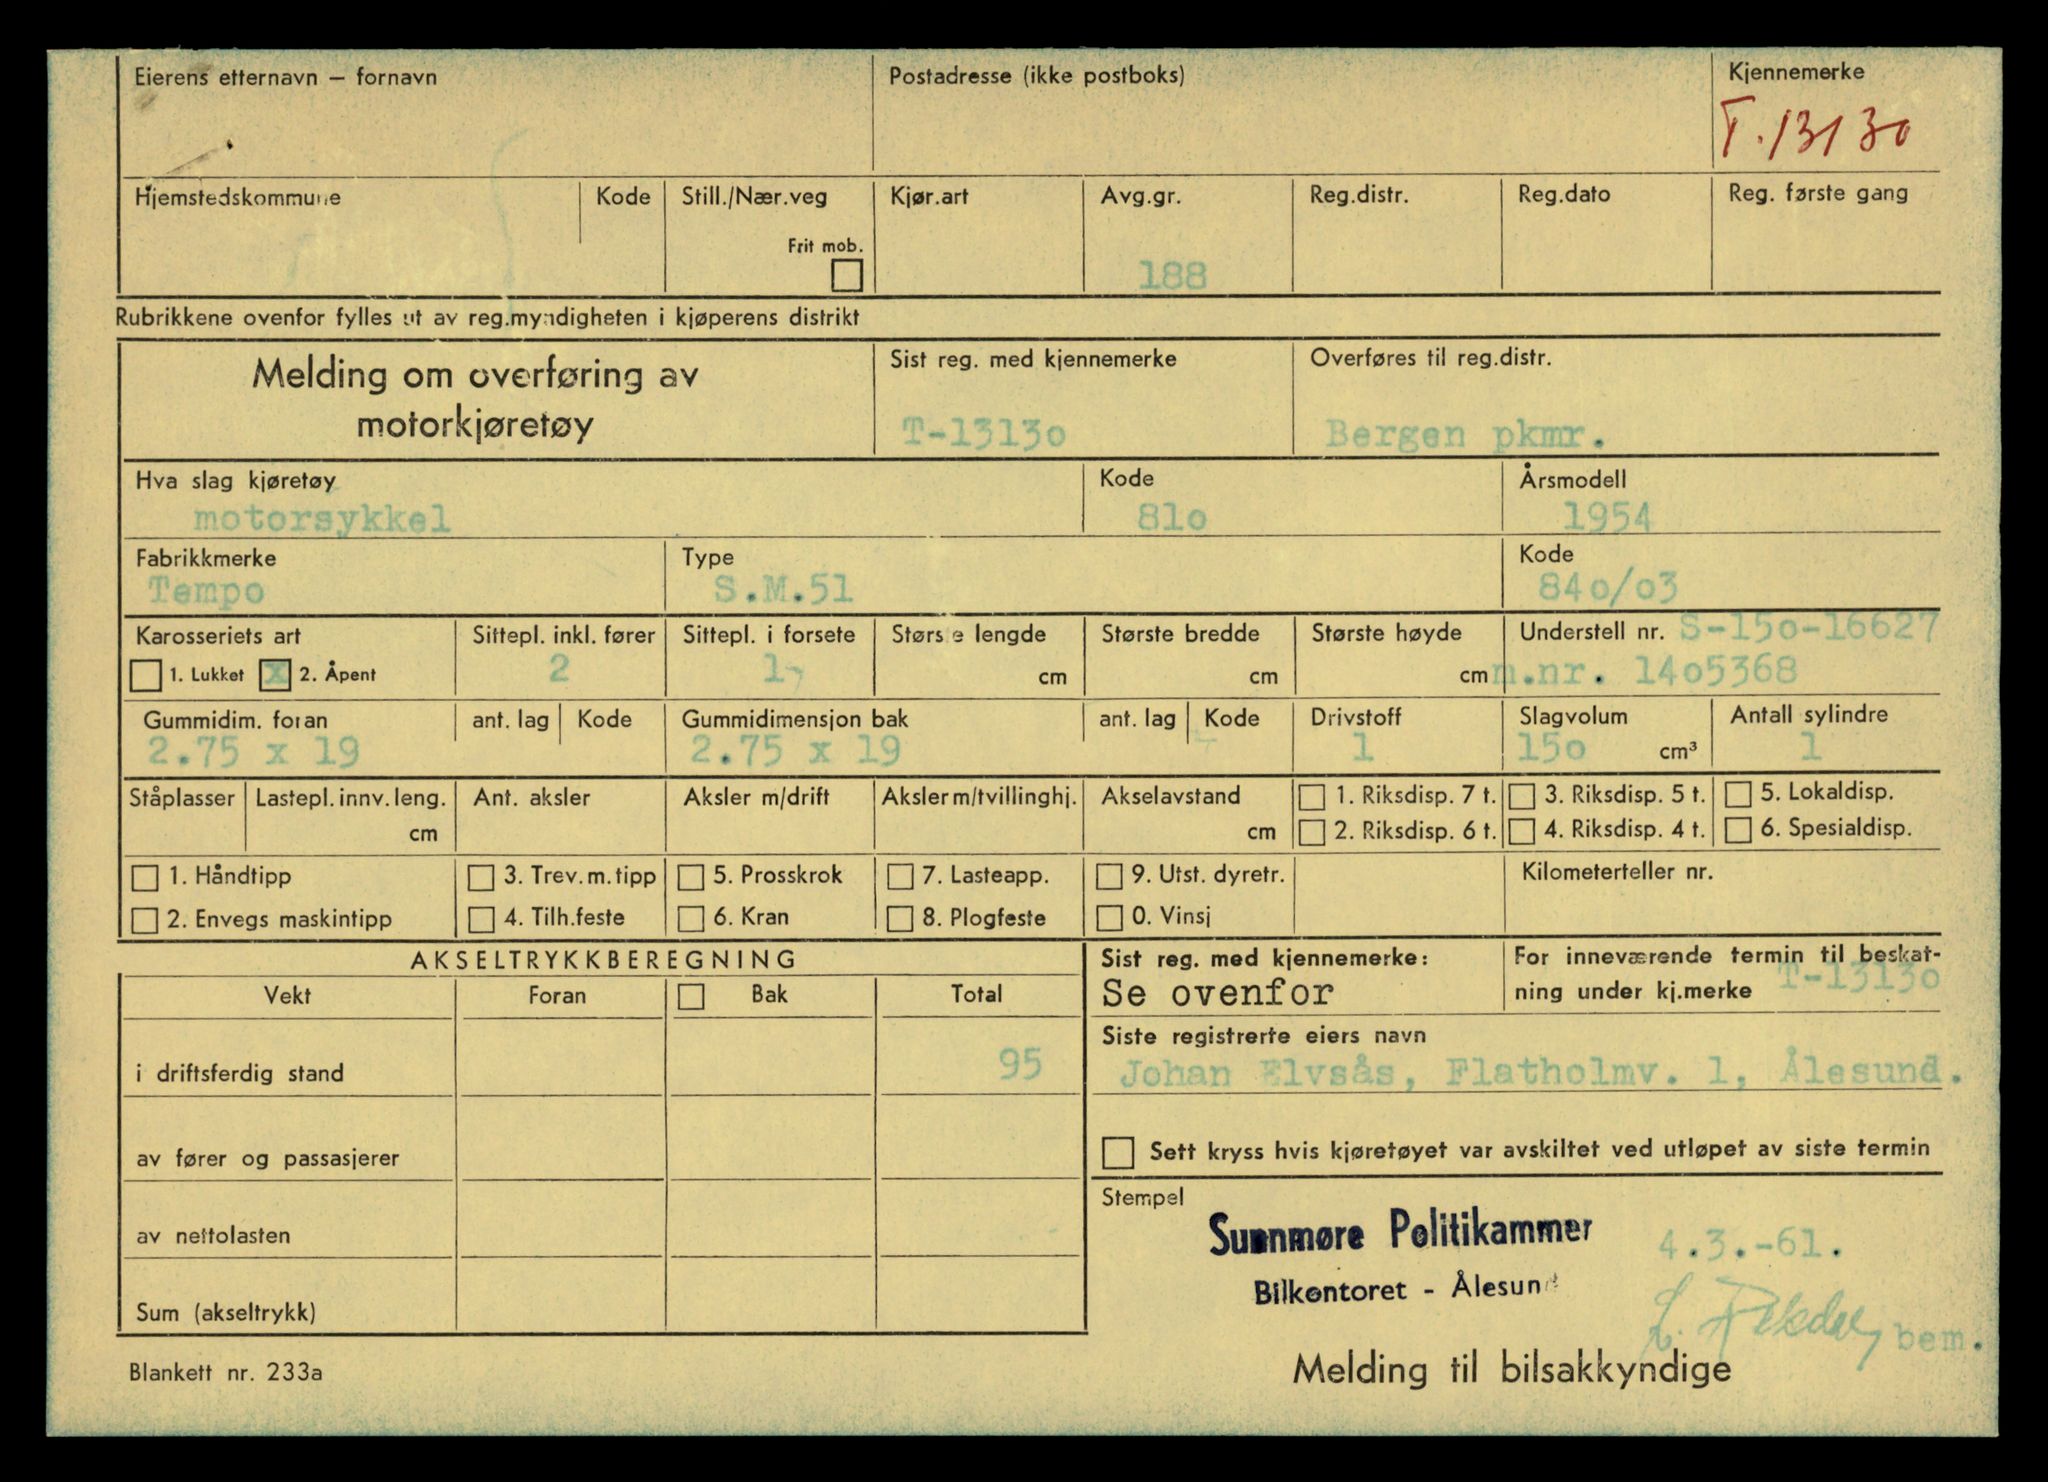 Eierens etternavn — fornavn
Postadresse (ikke postboks)
Kjennemerke
T.13130
Hjemstedskommune
Kode
Still./Nær.veg
Frit mob.
Kjør.art
Avg.gr.
188
Reg.distr.
Reg.dato
Reg. første gang
Rubrikkene ovenfor fylles ut av reg.myndigheten i kjøperens distrikt
Melding om overføring av
motorkjøretøy
Sist reg. med kjennemerke
T-1313o
Overføres til reg.distr.
Bergen pkmr.
Hva slag kjøretøy
motorsykkel
Kode
81o
Årsmodell
1954
Fabrikkmerke
Tempo
Type
S.M.51
Kode
84o/o3
Karosseriets art
1. Lukket x 2. Åpent
Sittepl. inkl. fører
2
Sittepl. i forsete
1-
Største lengde
cm
Største bredde
cm
Største høyde
cm
Understell nr. S-15o-16627
m.nr. 14o5368
Gummidim. foran
2.75 x 19
ant. lag
Kode
Gummidimensjon bak
2.75 x 19
ant. lag
Kode
Drivstoff
1
Slagvolum
15o cm³
Antall sylindre
1
Ståplasser
Lastepl. innv. leng.
cm
Ant. aksler
Aksler m/drift
Aksler m/tvillinghj.
Akselavstand
cm
1. Riksdisp. 7 t.
2. Riksdisp. 6 t.
3. Riksdisp. 5 t.
4. Riksdisp. 4 t.
5. Lokaldisp.
6. Spesialdisp.
1. Håndtipp
2. Envegs maskintipp
3. Trev. m. tipp
4. Tilh.feste
5. Prosskrok
6. Kran
7. Lasteapp.
8. Plogfeste
9. Utst. dyretr.
0. Vinsj
Kilometerteller nr.
AKSELTRYKKBEREGNING
Vekt
Foran
Bak
Total
i driftsferdig stand
95
av fører og passasjerer
av nettolasten
Sum (akseltrykk)
Sist reg. med kjennemerke:
Se ovenfor
For inneværende termin til beskat-
ning under kj.merke T-1313o
Siste registrerte eiers navn
Johan Elvsås, Flatholmv. 1, Ålesund.
Sett kryss hvis kjøretøyet var avskiltet ved utløpet av siste termin
Stempel
Sunnmøre Politikammer
4.3.-61.
Bilkontoret - Ålesund
bem.
Blankett nr. 233a
Melding til bilsakkyndige